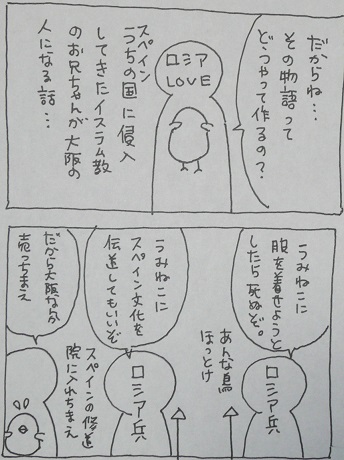 だからね…
その物語って
どうやって作るの?
ロシア
LOVE
スペイン
うちの国に侵入
してきたイスラム教
のお兄ちゃんが大阪の
人になる話…
うみねこに
服を着せようと
したら死ぬぞ。
あんな鳥
ほっとけ
ロシア兵
うみねこに
スペイン文化を
伝道してもいいぞ
ロシア兵
スペインの修道
院に入れちまえ
だから大阪なんか
売っちまえ